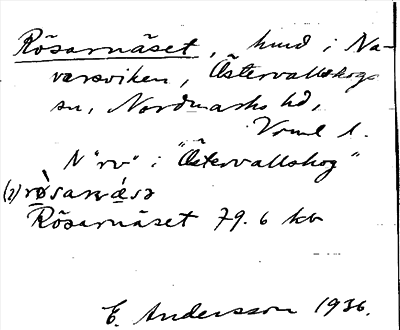 Rösarnäset, hmd i Na-
varsviken, Östervallskogs
sn, Nordmarks hd,
Vrml l.
N "rv" i "Östervallskog"
(2)
Rösarnäset 79.6 kv
E. Andersson 1936.